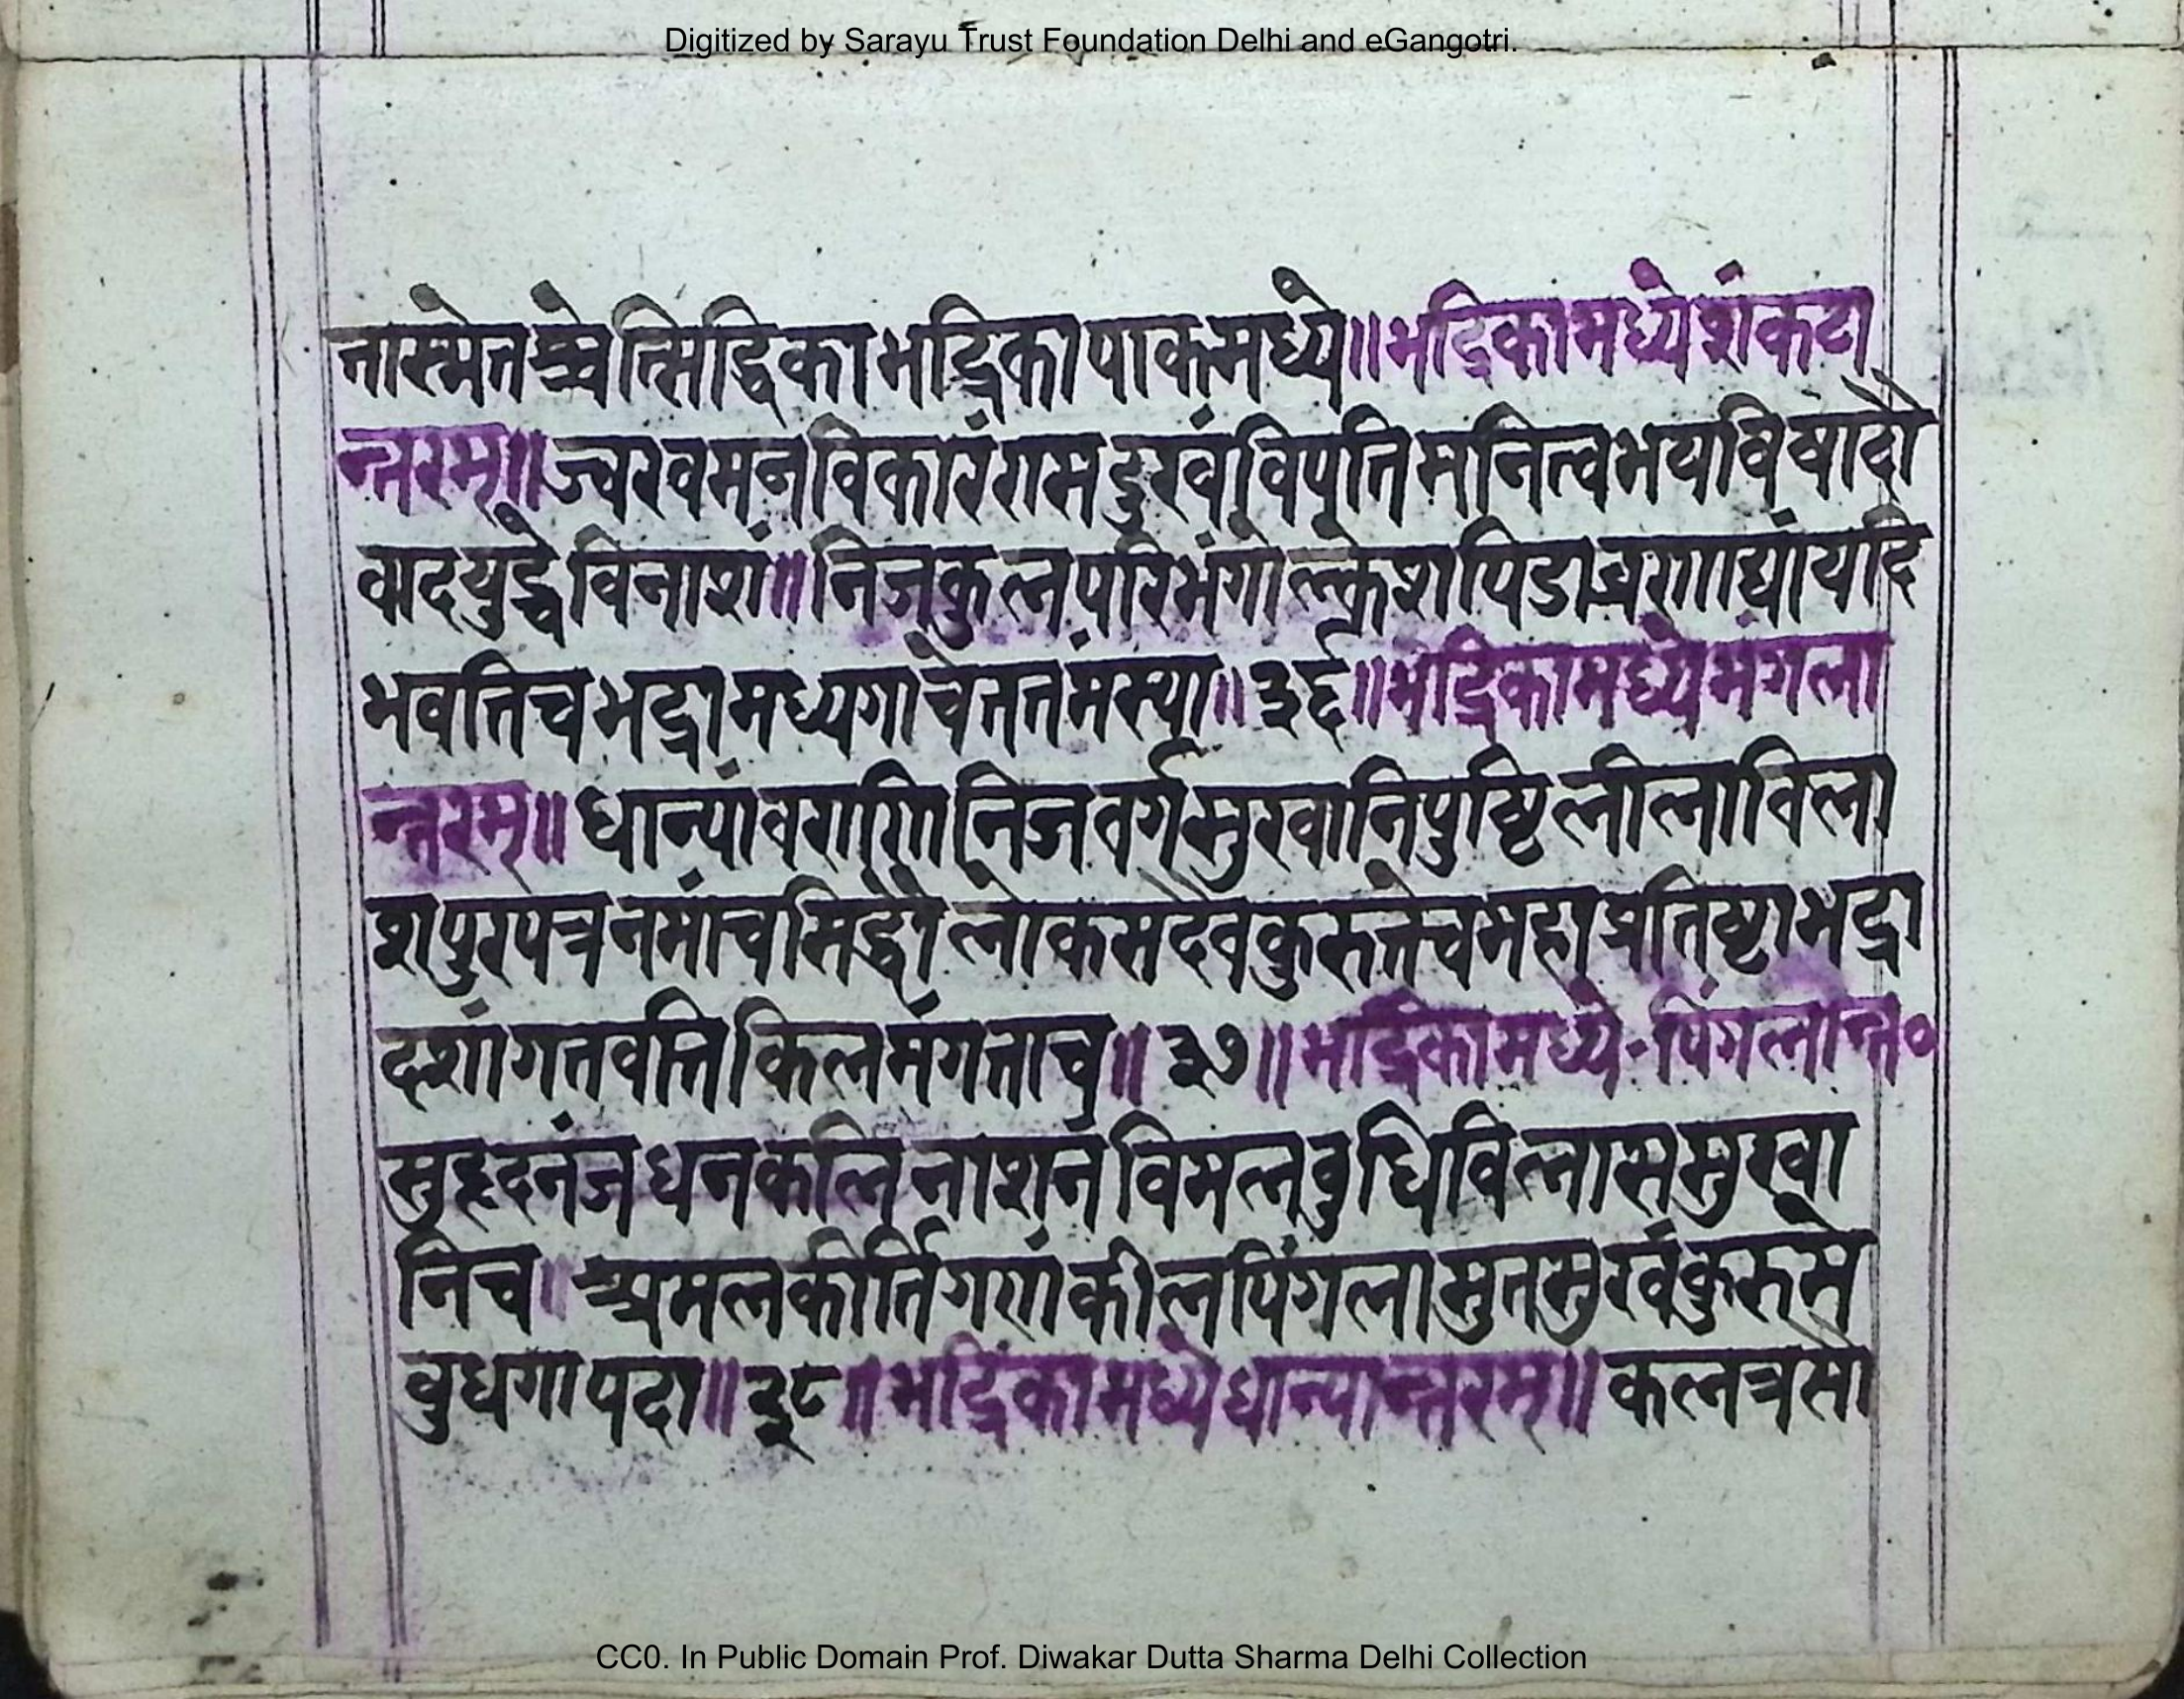 Digitized by Sarayu Trust Foundation Delhi and eGangotri.
नास्मेतश्चेत्सिद्धिका भद्रिका पाकमध्ये॥ भद्रिकामध्ये शंकटा
न्तरम्॥ ज्वरवमनविकारं गमदुखं विपतिमनित्वभयविषादौ
वादयुद्धे विनाशं॥ निजकुलपरिभंगो क्लेशपिडा व्रणाद्यां यदि
भवतिच भद्रामध्यगा चेत्ततमंस्या॥ ३६॥ भद्रिकामध्ये मंगला
न्तरम्॥ धान्यांवराणि निजवर्गसुखानिपुष्टि लीलाविला
शपुरपत्रनमांच सिद्धौ लोकसदेवकुरुतेच महाप्रतिष्टा भद्रा
दशां गतवति किल मंगलाच॥ ३७॥ भद्रिकामध्ये-पिंगलान्त०
सुहृदनंज धनकलि नाशनं विमलवुधिविलाससुखा
निच। अमलकीर्तिगणं कील पिंगला सुतसुखं कुरुमे
वुधगा पदा॥ ३८॥ भद्रिकामध्ये धान्यान्तरम्॥ कलत्रसौ
CC0. In Public Domain Prof. Diwakar Dutta Sharma Delhi Collection